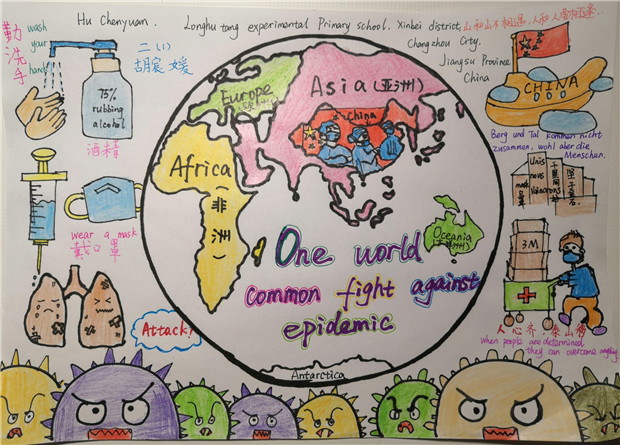 Hu Chenyuan.
Longhu tang experimental Primary school. Xinbei district,
Changzhou City.
Jiangsu Province
China
勤洗手
wash
your
hands
二(1)
胡宸媛
75%
rubbing
alcohol
酒精
wear a mask
戴口罩
Attack!
Europe
Asia (亚洲)
China
Africa
(非天)
Oceania
Antarctica
One world
common fight against
epidemic
CHINA
Berg und Tal kommen nicht
zusammen, wohl aber die
Menschen.
3M
人心齐,泰山移
When people are determined
they can overcome anything